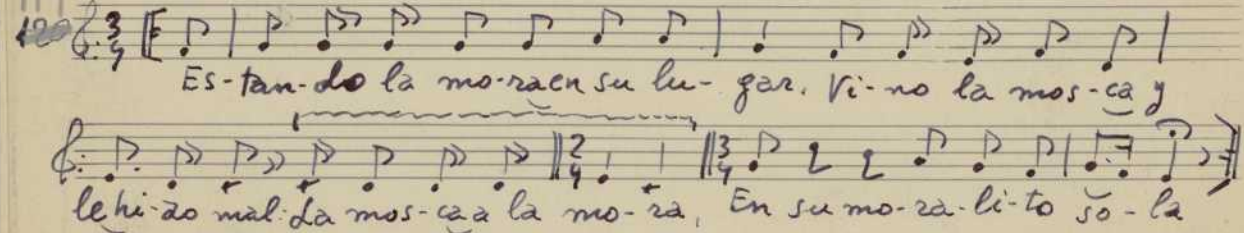 120 3/4 Es-tan-do la mo-ra en su lu-gar. Vi-no la mos-ca y
le hi-zo mal: La mos-ca a la mo-ra, En su mo-ra-li-to so-la